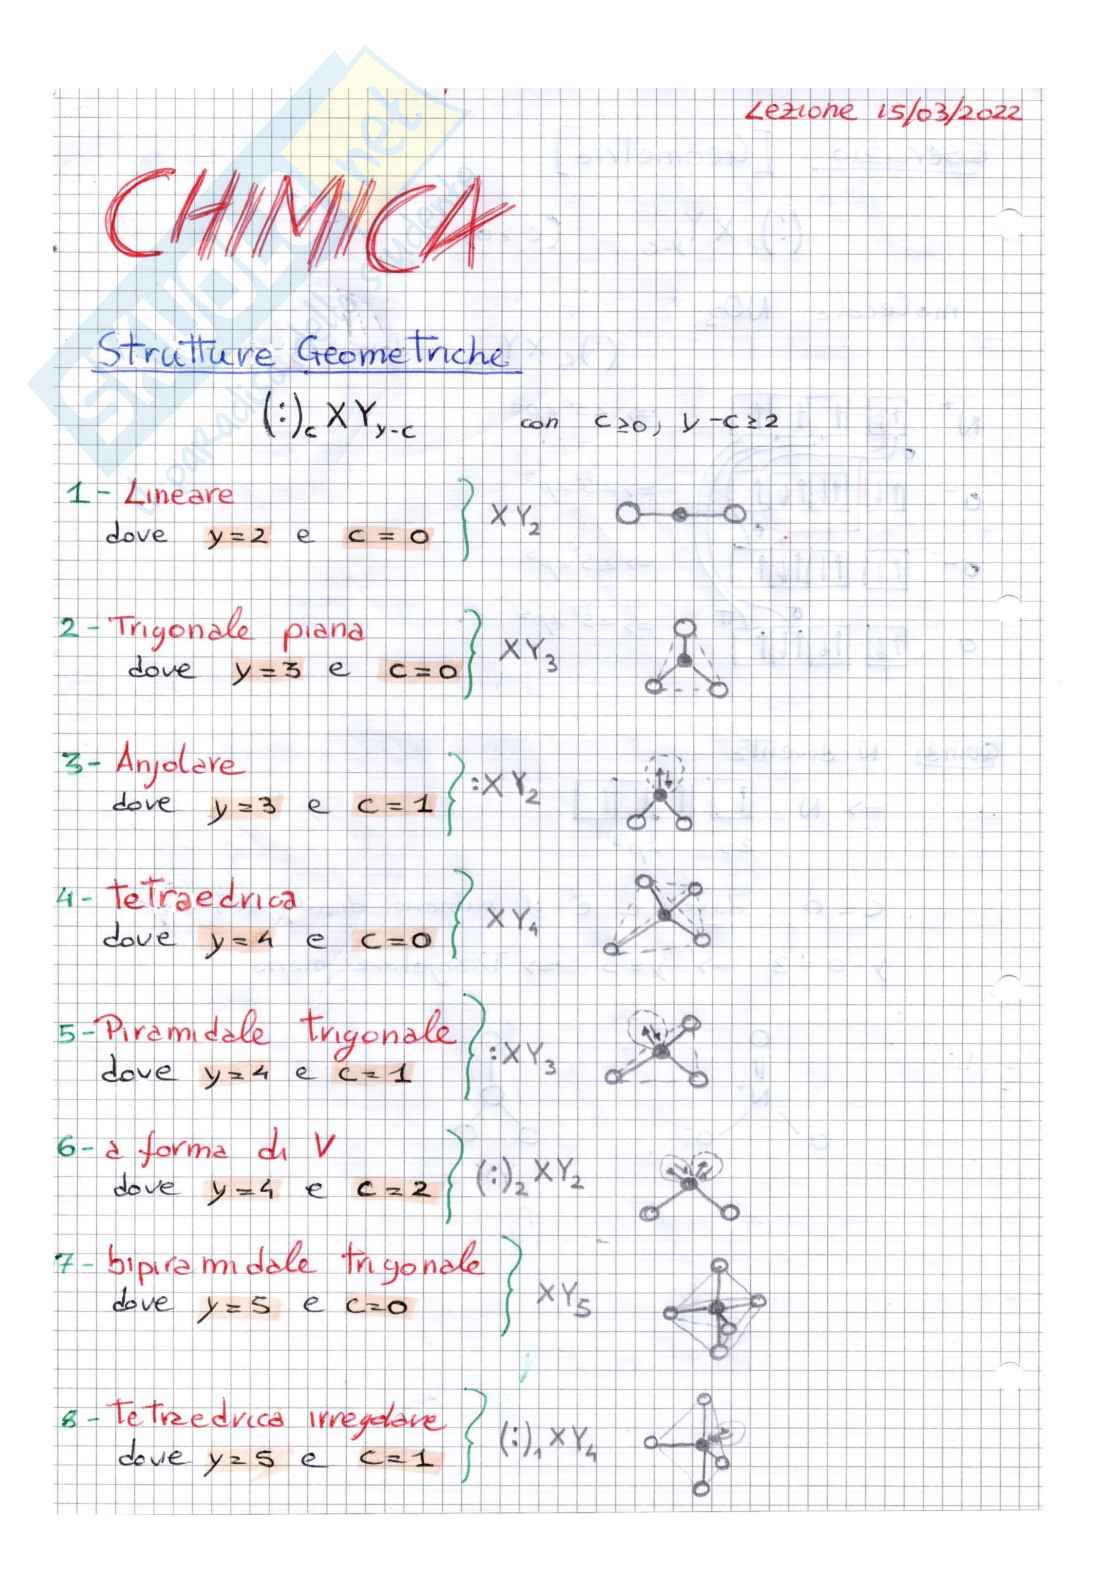 Lezione 15/03/2022
CHIMICA
SKUOLA.net
Strutture Geometriche
(:)c XYy-c con c≥0, y-c≥2
1- Lineare
dove y=2 e c=0 XY2
2- Trigonale piana
dove y=3 e c=0 XY3
3- Angolare
dove y=3 e c=1 :XY2
4- tetraedrica
dove y=4 e c=0 XY4
5- Piramidale trigonale
dove y=4 e c=1 :XY3
6- a forma di V
dove y=4 e c=2 (:)2 XY2
7- bipiramidale trigonale
dove y=5 e c=0 XY5
8- tetraedrica irregolare
dove y=5 e c=1 (:)1 XY4